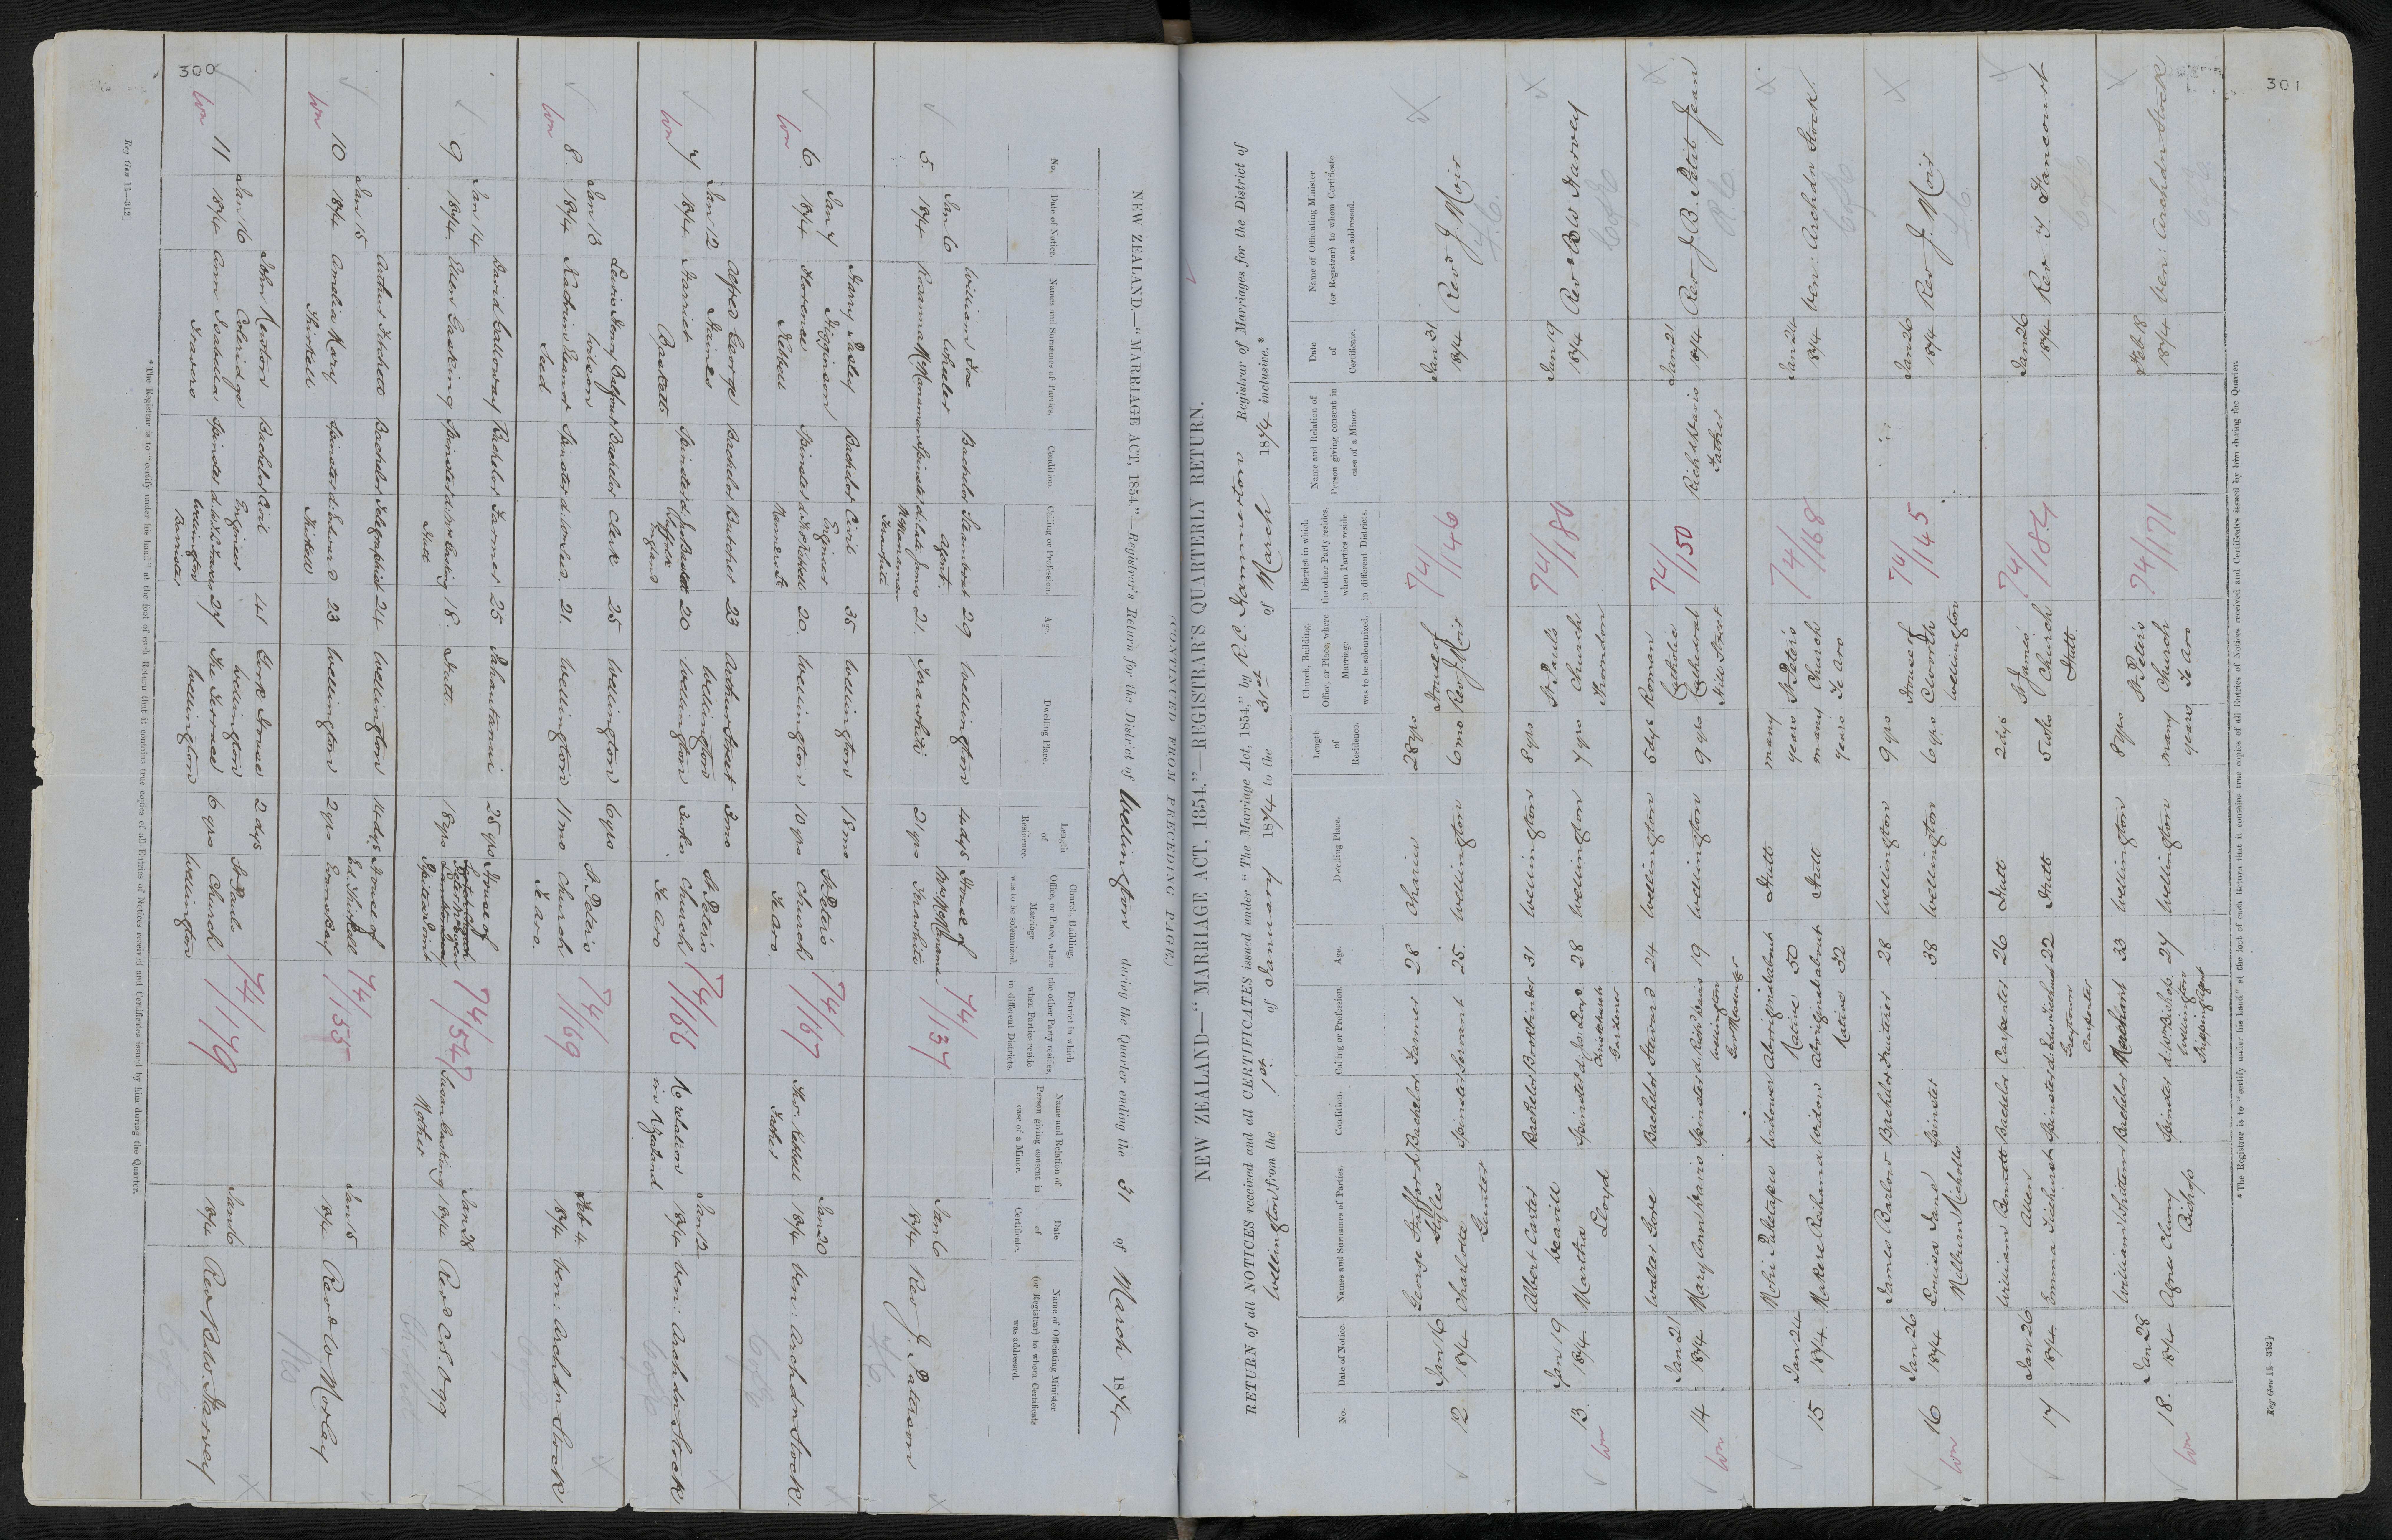 300
NEW ZEALAND.—"MARRIAGE ACT, 1854."—Registrar's Return for the District of Wellington during the Quarter ending the 31 of March 1874
No.
Date of Notice.
Names and Surnames of Parties.
Condition.
Calling or Profession.
Age.
Dwelling Place.
Length of Residence.
Church, Building, Office, or Place, where Marriage was to be solemnized.
District in which the other Party resides, when Parties reside in different Districts.
Name and Relation of Person giving consent in case of a Minor.
Date of Certificate.
Name of Officiating Minister (or Registrar) to whom Certificate was addressed.
5. Jan 6 1874
William Fox Wheeler Bachelor Steamboat Agent. 29 Wellington 4 dys House of
Rosanna McManaman Spinster d. late James McManaman Terawhiti 21. Terawhiti 21 yrs Mrs McManaman Terawhiti
74/137
Jan 6 1874 Rev J. Paterson
F.C.
6. Jan 7 1874
Harry Pasley Higginson Bachelor Civil Engineer 35. Wellington 18 mo St. Peter's
Florence Kebbell Spinster 20. Wellington 10 yrs Church Te Aro.
74/167
Thos. Kebbell Father
Jan 20 1874 Ven: Archdn Stock.
C of E
7 Jan 12 1874
Alfred George Haines Bachelor Butcher 23 Arthur Street Wellington 3 mo St. Peter's
Harriet Bartlett Spinster Suffolk England 20 Wellington 3 wks. Church Te Aro
74/166
No relation in N Zealand
Jan 12 1874 Ven: Archdn Stock
C of E
8. Jan 13 1874
Lewis Henry Balfour Wilson Bachelor Clerk 25 Wellington 6 yrs St. Peter's
Spinster 21. Wellington 11 mo Church Te Aro.
74/169
Feb 4 1874 Ven: Archdn Stock
C of E
9 Jan 14 1874
David Galloway Bachelor Farmer 25 Pahautanui 25 yrs House of
Ellen Gasking Spinster Hutt 18. Hutt. 18 yrs
74/547
Susan Gasking Mother
Jan 28 1874 Revd C.S. Ogg
10 Jan 15 1874
Arthur Bachelor Telegraphist 24 Wellington 14 dys House of
Amelia Mary Thirkell Spinster d. Edward Thirkell 23 Wellington 2 yrs Ed. Thirkell
74/155
Jan 15 1874 Revd W Morley
11 Jan 16 1874
John Newton Coleridge Bachelor Civil Engineer 41 York House Wellington 2 dys St. Pauls
Ann Isabella Travers Spinster Wellington Barrister 27 The Terrace Wellington 6 yrs Church Wellington
74/179
Jan 16 1874 Rev B.W. Harvey
C of E
*The Registrar is to "certify under his hand" at the foot of each Return that it contains true copies of all Entries of Notices received and Certificates issued by him during the Quarter.
Reg Gen 11—312]
301
(CONTINUED FROM PRECEDING PAGE.)
NEW ZEALAND—"MARRIAGE ACT, 1854."—REGISTRAR'S QUARTERLY RETURN.
RETURN of all NOTICES received and all CERTIFICATES issued under "The Marriage Act, 1854," by R.C. Hammerton Registrar of Marriages for the District of
Wellington from the 1st of January 1874 to the 31st of March 1874 inclusive.*
No.
Date of Notice.
Names and Surnames of Parties.
Condition.
Calling or Profession.
Age.
Dwelling Place.
Length of Residence.
Church, Building, Office, or Place, where Marriage was to be solemnized.
District in which the other Party resides, when Parties reside in different Districts.
Name and Relation of Person giving consent in case of a Minor.
Date of Certificate.
Name of Officiating Minister (or Registrar) to whom Certificate was addressed.
12. Jan 16 1874
George Stafford Styles Bachelor Farmer 28 Ohariu 28 yrs House of
Charlotte Gunter Spinster Servant 25. Wellington 6 mo Rev J. Moir
74/146
Jan 31 1874 Revd J. Moir
F.C.
13. Jan 19 1874
Albert Carter Weavill Bachelor 31 Wellington 8 yrs St. Pauls
Martha Lloyd Spinster Christchurch Gardener 28 Wellington 7 yrs Church Thorndon
74/180
Jan 19 1874 Rev B W Harvey
C of E
14. Jan 21 1874
Walter Gore Bachelor Steward 24 Wellington 5 dys Roman
Mary Ann Spinster Wellington Gov Messenger 19 Wellington 9 yrs Catholic Cathedral Hill Street
74/150
Father
Jan 21 1874 Rev J.B. Petit Jean
R C
15 Jan 24 1874
Widower Aboriginal Native about 50 Hutt many years St. Peter's
Makere Reihana Widow Aboriginal Native about 32 Hutt many years Church Te Aro
74/168
Jan 24 1874 Ven: Archdn Stock.
C of E
16 Jan 26 1874
James Barlow Bachelor Fruiterer 28 Wellington 9 yrs House of
Louisa Jane Spinster 38 Wellington 6 yrs Wellington
74/145
Jan 26 1874 Rev J. Moir
F C.
17 Jan 26 1874
William Bennett Allen Bachelor Carpenter 26 Hutt 2 dys St. James'
Emma Spinster Greytown Carpenter 22 Hutt 5 wks Church Hutt.
74/184
Jan 26 1874 Rev T. Fancourt
C of E
18. Jan 28 1874
William Whitten Bachelor Merchant 33 Wellington 8 yrs St. Peter's
Agnes Bishop Spinster Wellington Shipping Agent 27 Wellington many years Church Te Aro
74/171
Feb 18 1874 Ven: Archdn Stock
C of E.
*The Registrar is to "certify under his hand" at the foot of each Return that it contains true copies of all Entries of Notices received and Certificates issued by him during the Quarter.
Reg Gen 11—312]